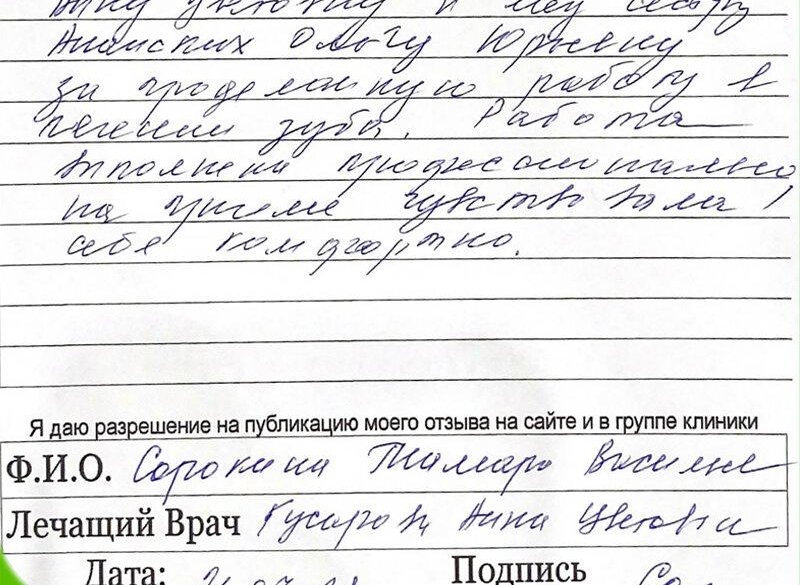 Анну Цветовну и мед сестру
Анинских Ольгу Юрьевну
за проделанную работу в
лечении зуба. Работа
выполнена профессионально
на приеме чувствовала
себя комфортно.
Я даю разрешение на публикацию моего отзыва на сайте и в группе клиники
Ф.И.О. Сорокина Тамара Василье
Лечащий Врач Гусарова Анна Цветовна
Дата: Подпись